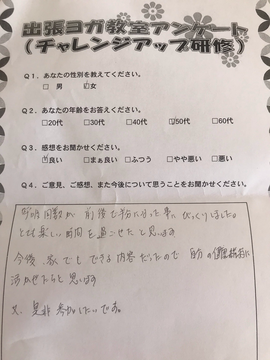 出張ヨガ教室アンケート
（チャレンジアップ研修）
Q1．あなたの性別を教えてください。
□ 男 ☑女
Q2．あなたの年齢をお答えください。
□20代 □30代 □40代 ☑50代 □60代
Q3．感想をお聞かせください。
☑良い □まぁ良い □ふつう □やや悪い □悪い
Q4．ご意見、ご感想、また今後について思うことをお聞かせください。
前後で 事にびっくりしました。
とても楽しい時間を過ごせたと思います
今後、家でもできる内容だったので 自分の健康維持に
活かせたらと思います
又、是非参加したいです。